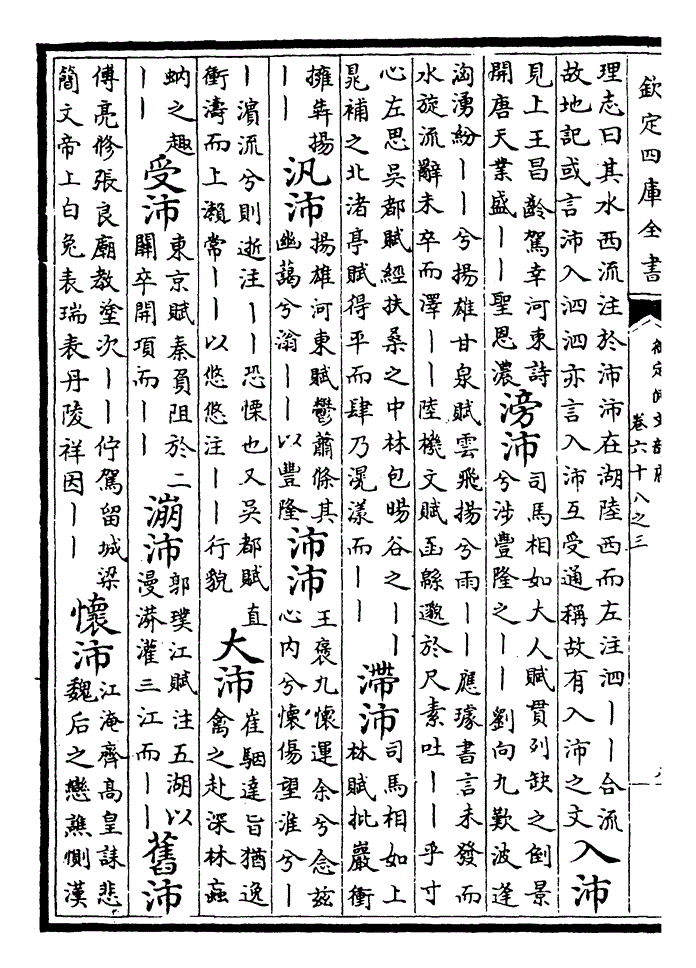 欽定四庫全書
御定佩文韻府
卷六十八之三
理志曰其水西流注於沛沛在湖陸西而左注泗丨丨合流
故地記或言沛入泗泗亦言入沛互受通稱故有入沛之文
入沛
見上王昌齡駕幸河東詩
開唐天業盛丨丨聖恩濃
滂沛
司馬相如大人賦貫列缺之倒景
兮涉豐隆之丨丨劉向九歎波逢
洶湧紛丨丨兮揚雄甘泉賦雲飛揚兮雨丨丨應璩書言未發而
水旋流辭未卒而澤丨丨陸機文賦函緜邈於尺素吐丨丨乎寸
心左思吳都賦經扶桑之中林包暘谷之丨丨
晁補之北渚亭賦得平而肆乃滉漾而丨丨
滯沛
司馬相如上
林賦批巖衝
擁犇揚
丨丨
汎沛
揚雄河東賦鬱蕭條其
幽藹兮滃丨丨以豐隆
沛沛
王褒九懷運余兮念兹
心內兮懷傷望淮兮丨
丨濱流兮則逝注丨丨恐慄也又吳都賦直
衝濤而上瀨常丨丨以悠悠注丨丨行貌
大沛
崔駰達旨猶逸
禽之赴深林蝱
蚋之趣
丨丨
受沛
東京賦秦負阻於二
關卒開項而丨丨
漰沛
郭璞江賦注五湖以
漫漭灌三江而丨丨
舊沛
傅亮修張良廟教塗次丨丨佇駕留城梁
簡文帝上白兔表瑞表丹陵祥因丨丨
懷沛
江淹齊高皇誄悲
魏后之戀譙惻漢